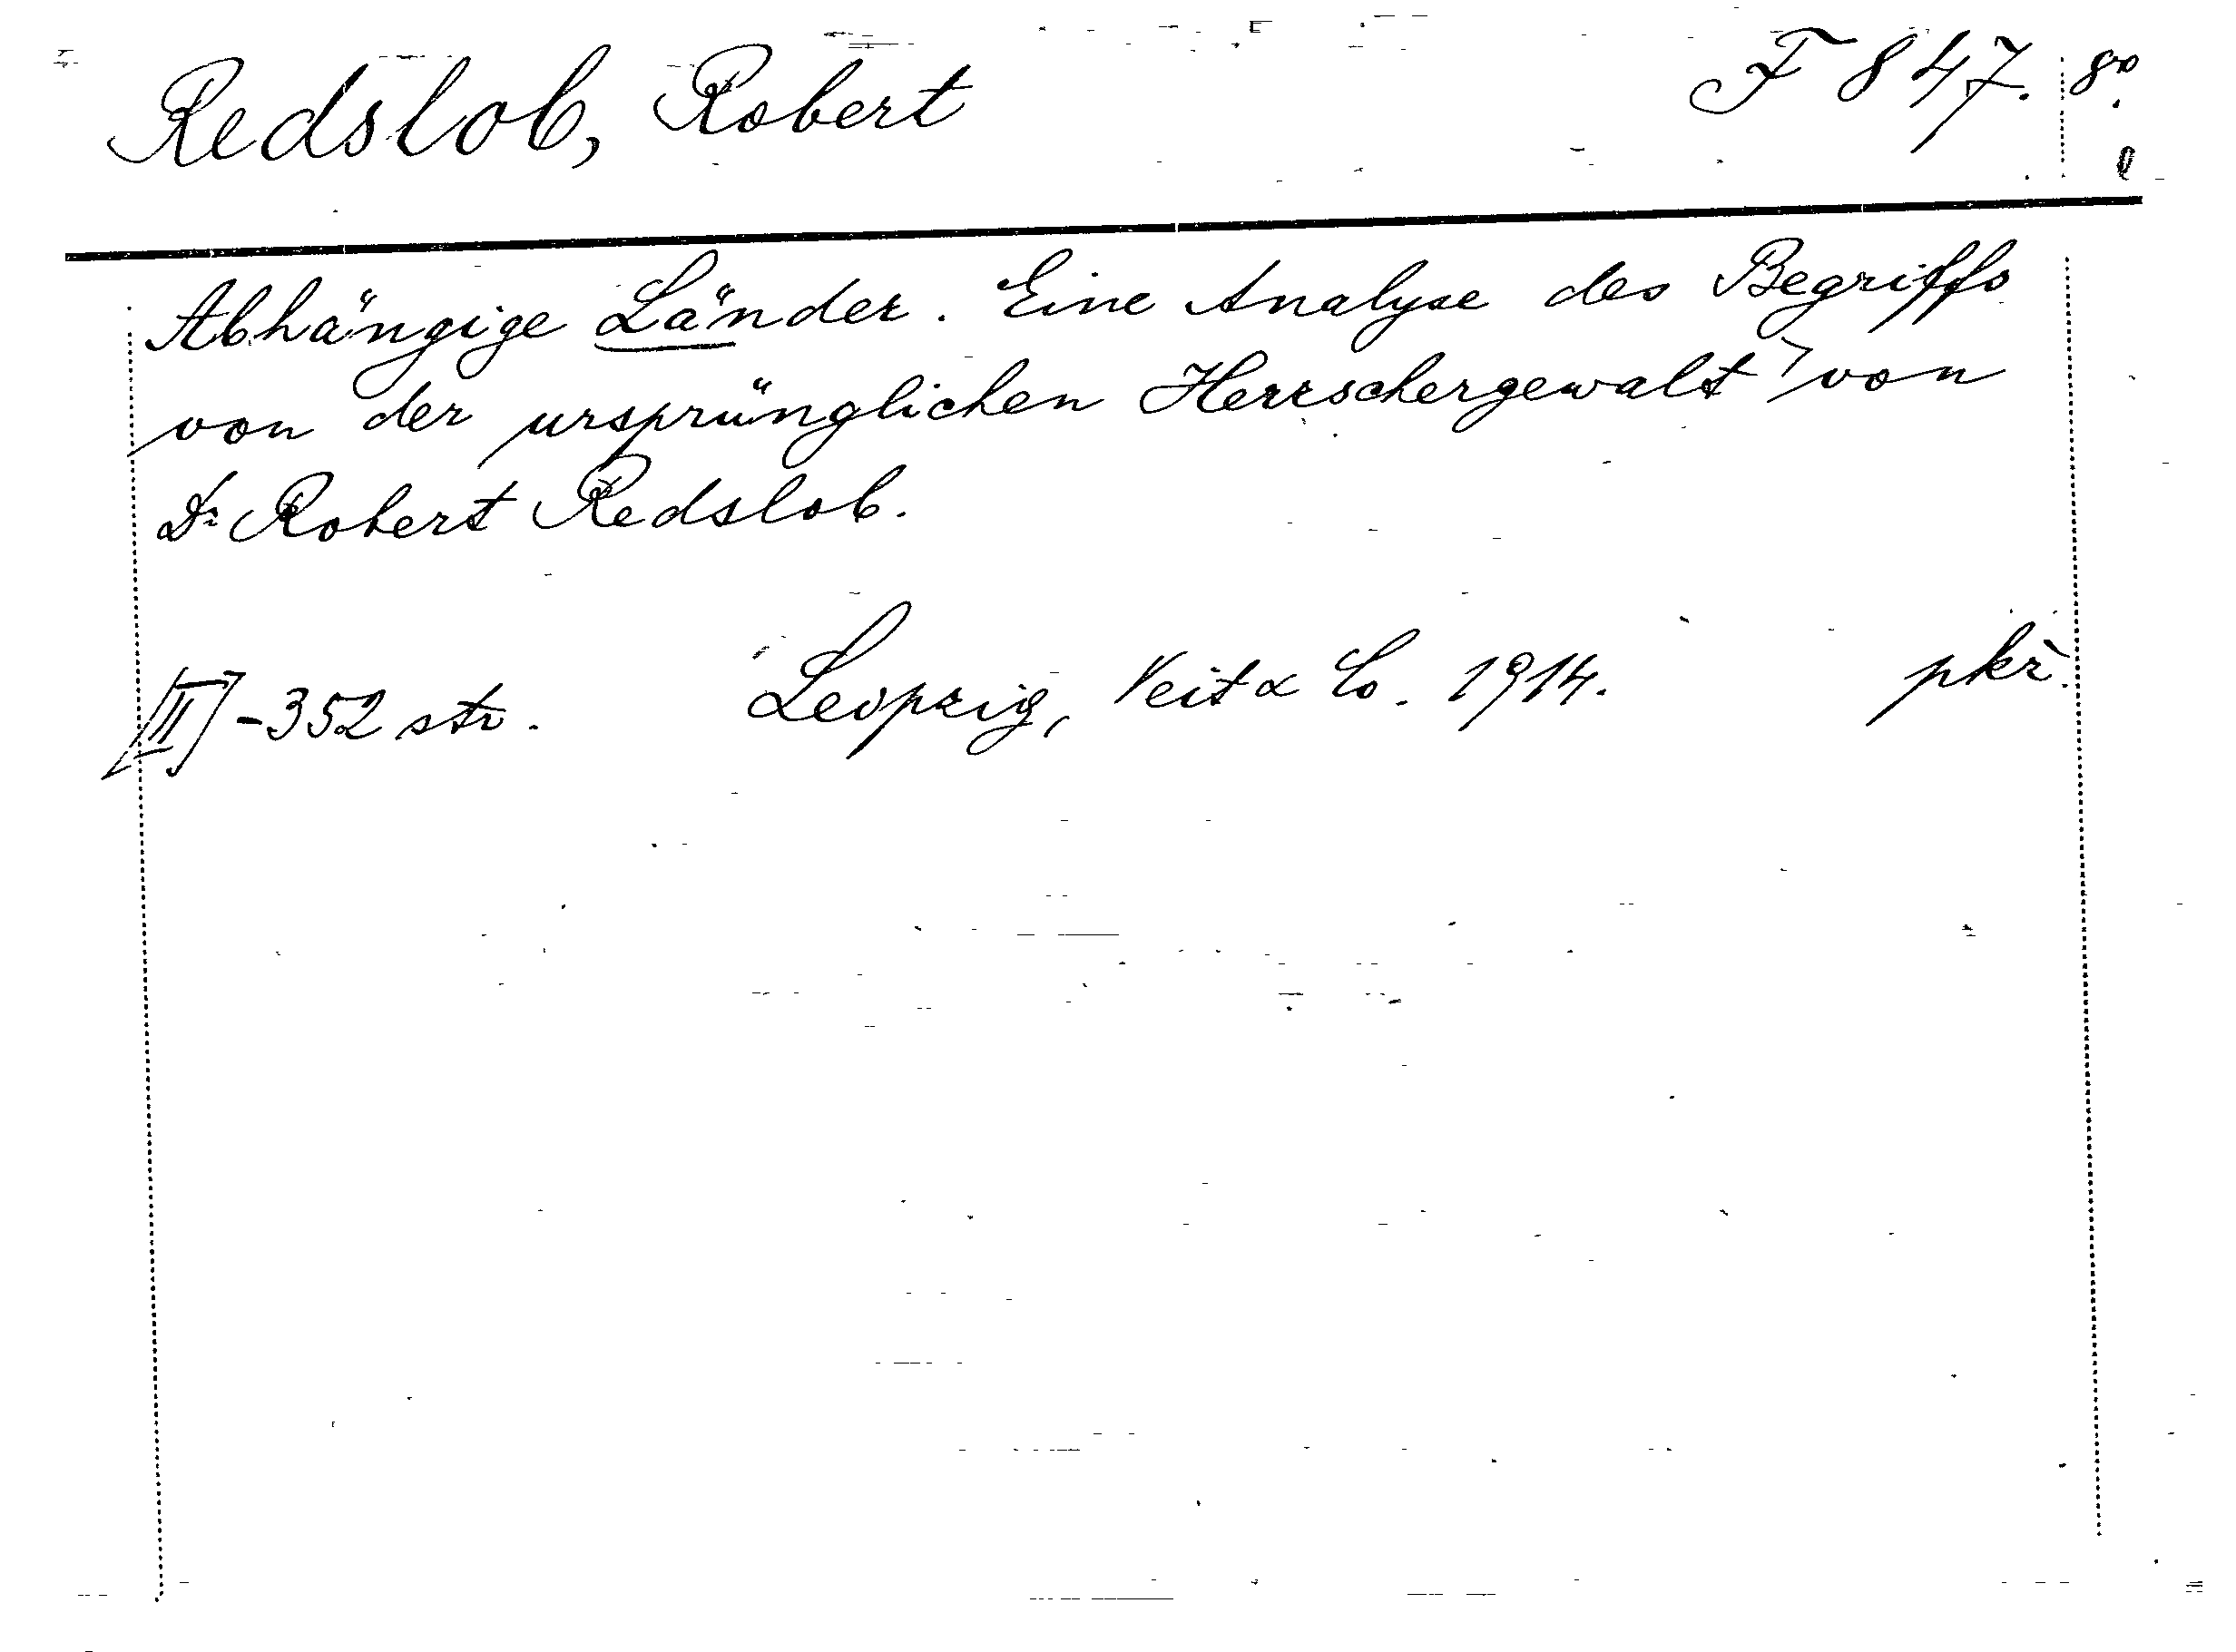 Redslob, Robert F 847. 8°.
Abhängige Länder. Eine Analyse des Begriffs
von der ursprünglichen Herrschergewalt von
Dr Robert Redslob.
[II]-352 str. Leipzig, Veit & Co. 1914. pkř.